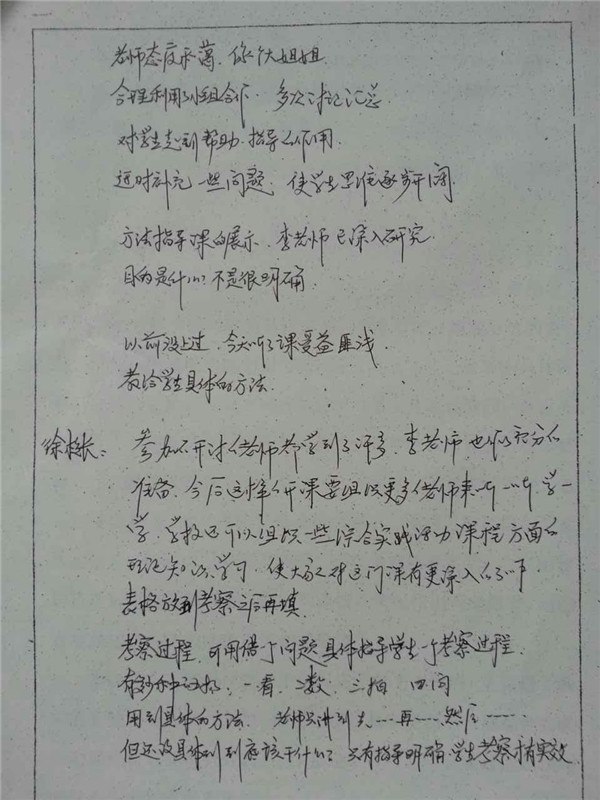 老师态度和蔼，像个大姐姐
合理利用小组合作，多次讨论汇总
对学生起到帮助、指导的作用
适时补充一些问题，使学生思维逐步开阔
方法指导课的展示，李老师已深入研究
目的是什么？不是很明确
以前没上过，今天听了课受益匪浅
教给学生具体的方法
徐校长：参加研讨的老师都学到了许多，李老师也做了充分的
准备，今后这样的开课要组织更多的老师来听一听，学一
学，学校还可以组织一些综合实践活动课程方面的
理论知识学习，使大家对这门课有更深入的了解
表格放到考察之后再填
考察过程，可用借个问题具体指导学生一个考察过程
一看，二数，三拍，四问
用到具体的方法，老师只讲到先……再……然后……
但还没具体到到底该干什么？只有指导明确，学生考察才有实效